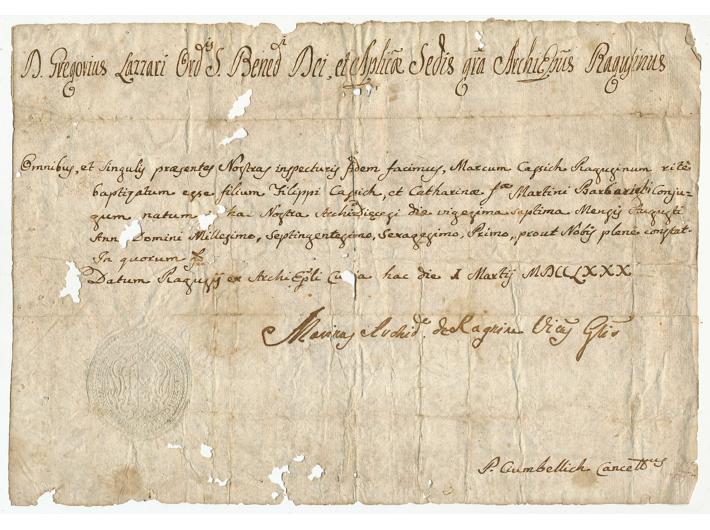 D. Gregorius Lazzari Ordis S. Bened.ti Dei, et Aplicæ Sedis grã ArchiEpus Ragusinus
Omnibus, et Singulis præsentes Nostras inspecturis fidem facimus, Marcum Cassich Ragusinum rite
baptizatum esse filium Filippi Cassich, et Catharinæ Martini Conju-
gum natum hac Nostra Archidiæcesi die vigesima septima Mensis Augusti
Anno Domini Millesimo, Septingentesimo, Sexagesimo, Primo, prout Nobis plene constat.
In quorum
Datum Ragusij ex ArchiEpli Curia hac die 1 Martij MDCCLXXX
Marinus Archid. de Ragnina Vics Glis
P. Cumbellich Cancell.us